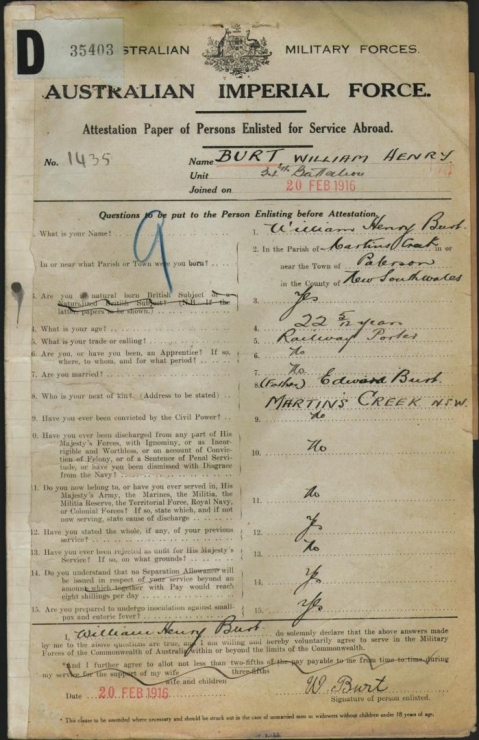 D 35403 AUSTRALIAN MILITARY FORCES.
AUSTRALIAN IMPERIAL FORCE.
Attestation Paper of Persons Enlisted for Service Abroad.
No. 1435 Name BURT WILLIAM HENRY.
Unit Battalion
Joined on 20 FEB 1916
Questions to be put to the Person Enlisting before Attestation.
9
What is your Name? 1. William Henry Burt.
In or near what Parish or Town were you born? 2. In the Parish of Martins Creek in or
near the Town of Paterson
in the County of New South Wales
3. Are you a natural born British Subject or a 3. Yes
Naturalized British Subject? (N.B. If the
latter papers to be shown.)
4. What is your age? 4. 22 years
5. What is your trade or calling? 5. Railway Porter
6. Are you, or have you been, an Apprentice? If so, 6. No
where, to whom, and for what period?
7. Are you married? 7. No.
8. Who is your next of kin? (Address to be stated) 8. (Father) Edward Burt.
MARTINS CREEK NSW.
9. Have you ever been convicted by the Civil Power? 9. No
10. Have you ever been discharged from any part of His 10. No
Majesty's Forces, with Ignominy, or as Incor-
rigible and Worthless, or on account of Convic-
tion of Felony, or of a Sentence of Penal Servi-
tude, or have you been dismissed with Disgrace
from the Navy?
11. Do you now belong to, or have you ever served in, His 11. No
Majesty's Army, the Marines, the Militia, the
Militia Reserve, the Territorial Force, Royal Navy,
or Colonial Forces? If so, state which, and if not
now serving, state cause of discharge
12. Have you stated the whole, if any, of your previous 12. Yes
service?
13. Have you ever been rejected as unfit for His Majesty's 13. No
Service? If so, on what grounds?
14. Do you understand that no Separation Allowance will 14. Yes
be issued in respect of your service beyond an
amount which together with Pay would reach
eight shillings per day
15. Are you prepared to undergo inoculation against small- 15. Yes
pox and enteric fever?
I, William Henry Burt do solemnly declare that the above answers made
by me to the above questions are true, and I am willing and hereby voluntarily agree to serve in the Military
Forces of the Commonwealth of Australia within or beyond the limits of the Commonwealth.
And I further agree to allot not less than two-fifths of the pay payable to me from time to time during
three-fifths
my service for the support of my wife
wife and children
Date 20 FEB 1916 W Burt
Signature of person enlisted.
* This clause to be amended where necessary and should be struck out in the case of unmarried men or widowers without children under 18 years of age.